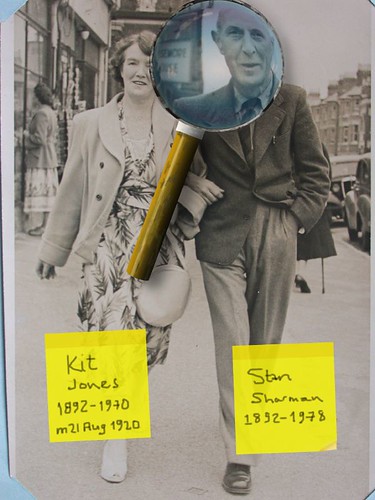 Kit
Jones
1892-1970
m21 Aug 1920
Stan
Sharman
1892-1978